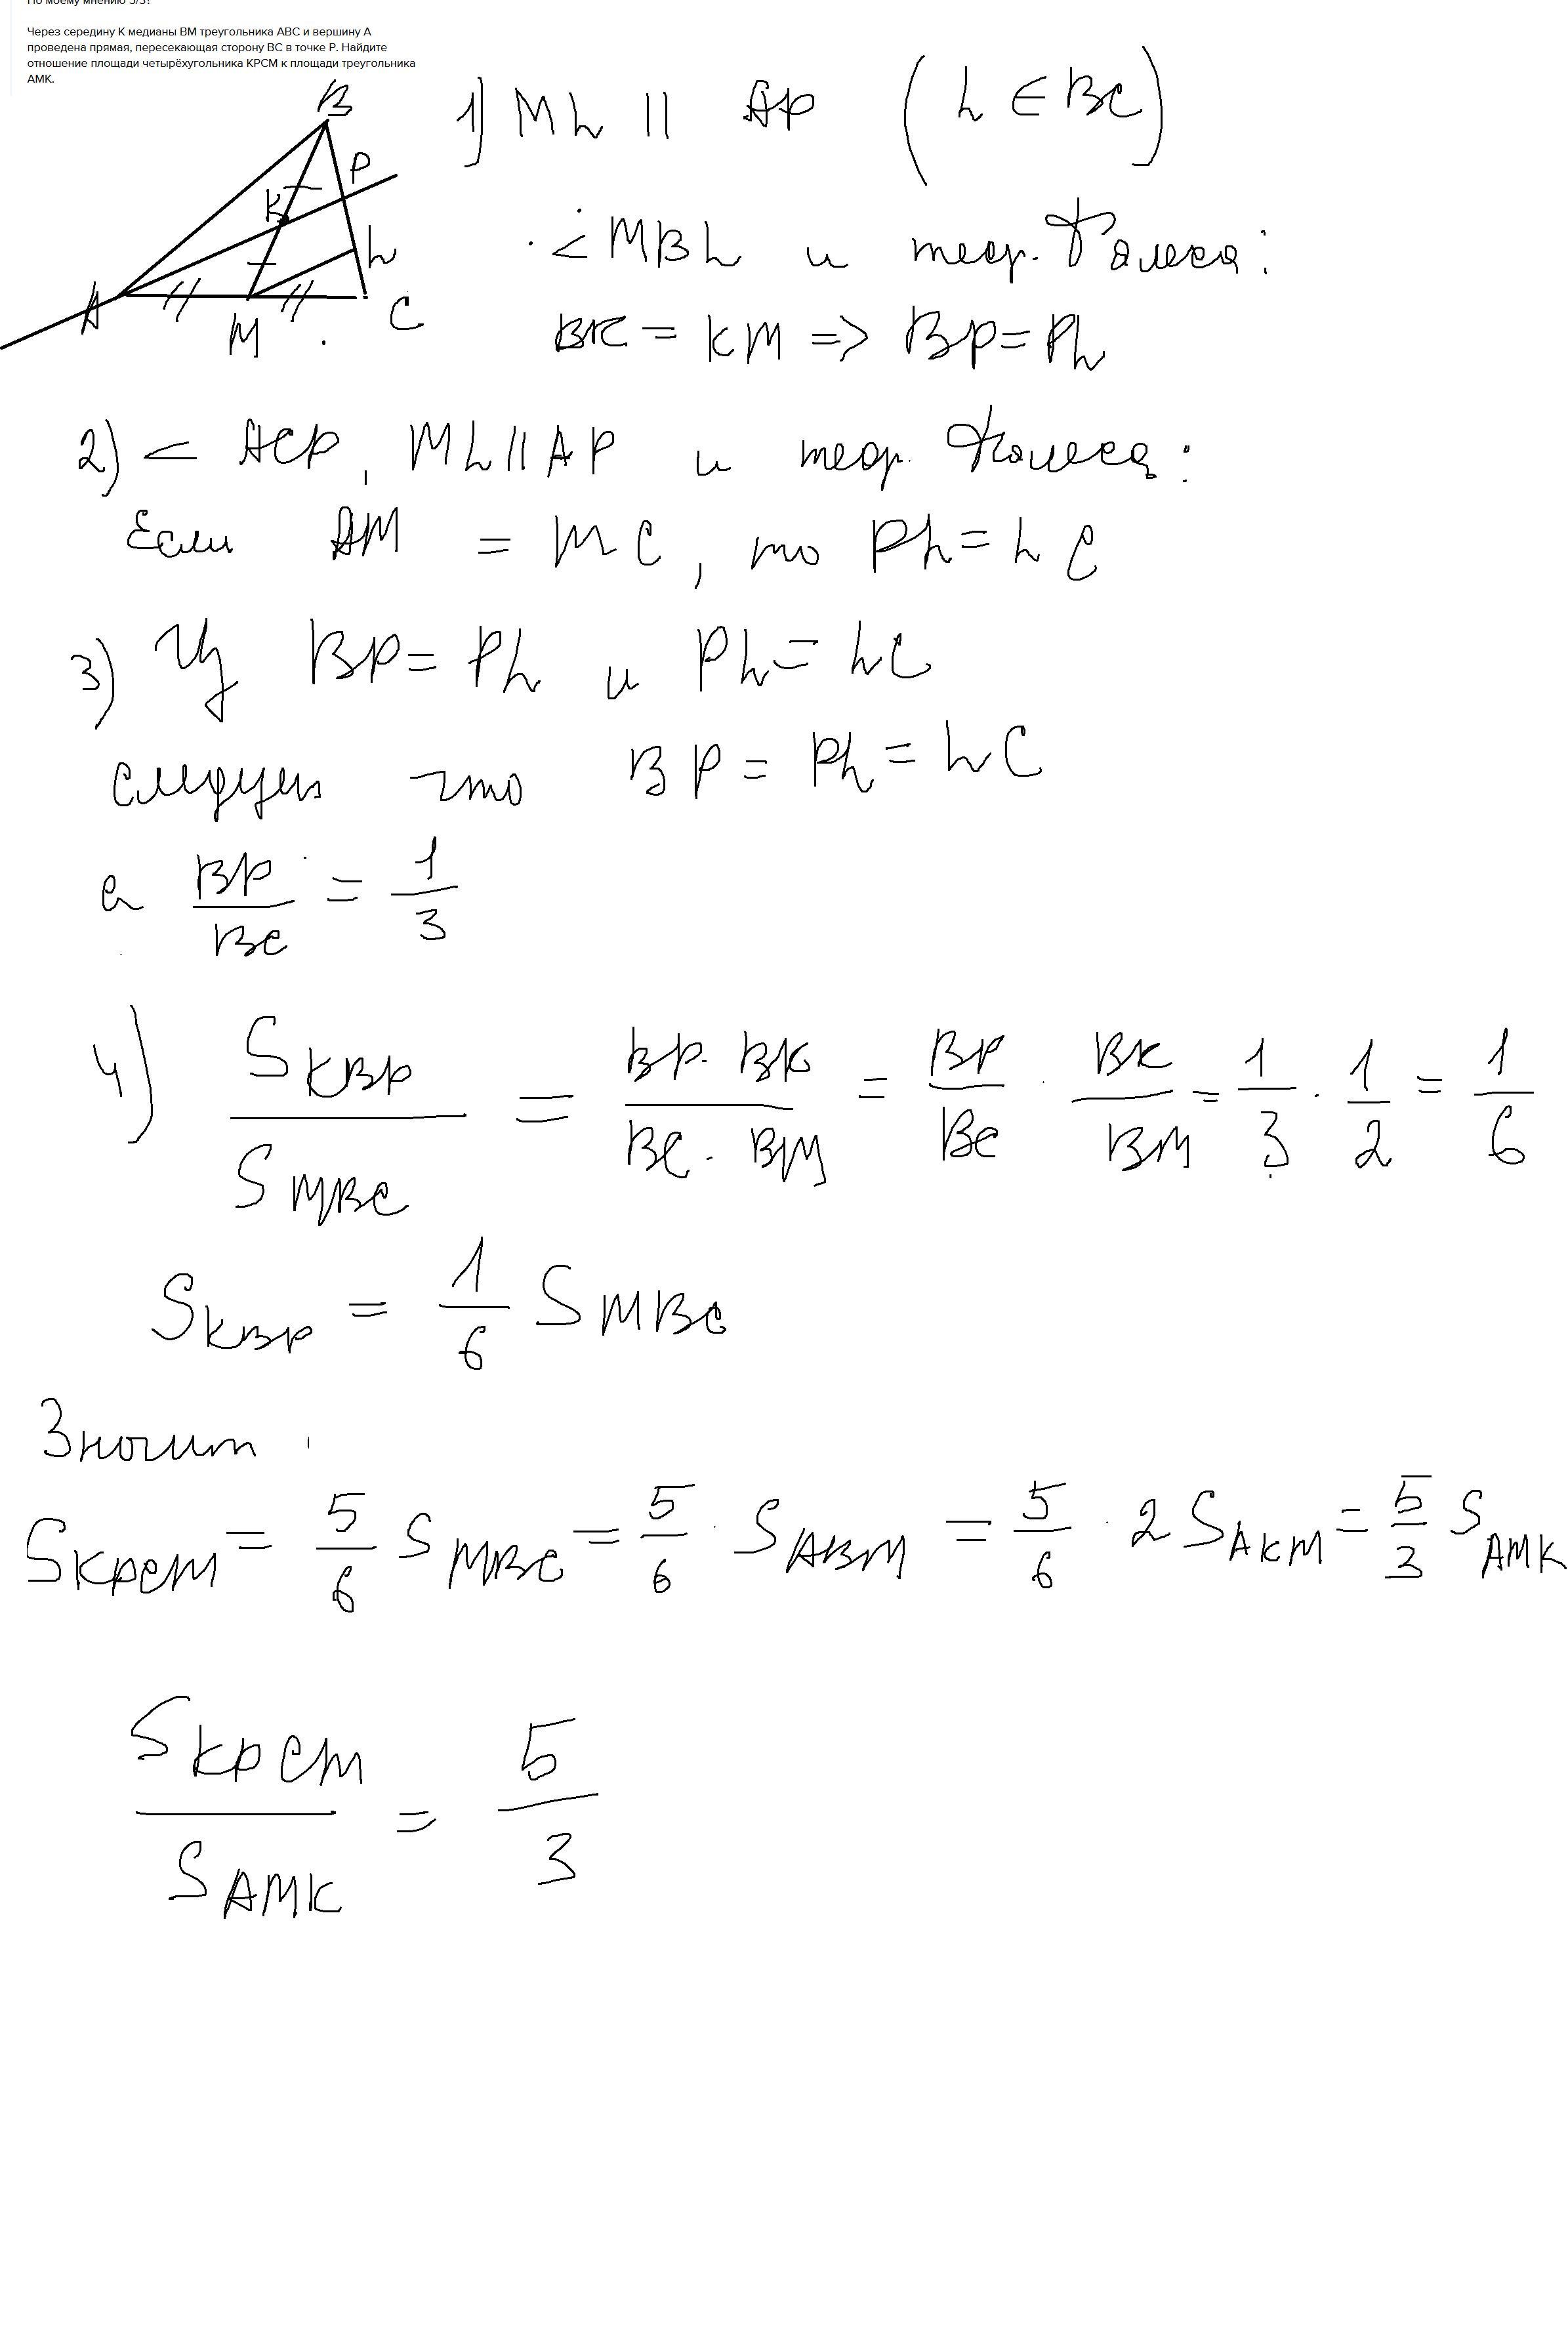 По моему мнению 5/3?
Через середину К медианы ВМ треугольника АВС и вершину А
проведена прямая, пересекающая сторону ВС в точке Р. Найдите
отношение площади четырёхугольника КРСМ к площади треугольника
АМК.
B
P
K
L
A
M
C
1) ML || AP (L ∈ BC)
∠MBL и теор. Фалеса:
BK = KM => BP = PL
2) ∠ ACP, ML || AP и теор. Фалеса:
Если AM = MC, то PL = LC
3) Из BP = PL и PL = LC
следует что BP = PL = LC
а BP/BC = 1/3
4) S KBP / S MBC = BP · BK / BC · BM = BP/BC · BK/BM = 1/3 · 1/2 = 1/6
S KBP = 1/6 S MBC
Значит
S KPCM = 5/6 S MBC = 5/6 · S ABM = 5/6 · 2 S AKM = 5/3 S AMK
S KPCM / S AMK = 5/3